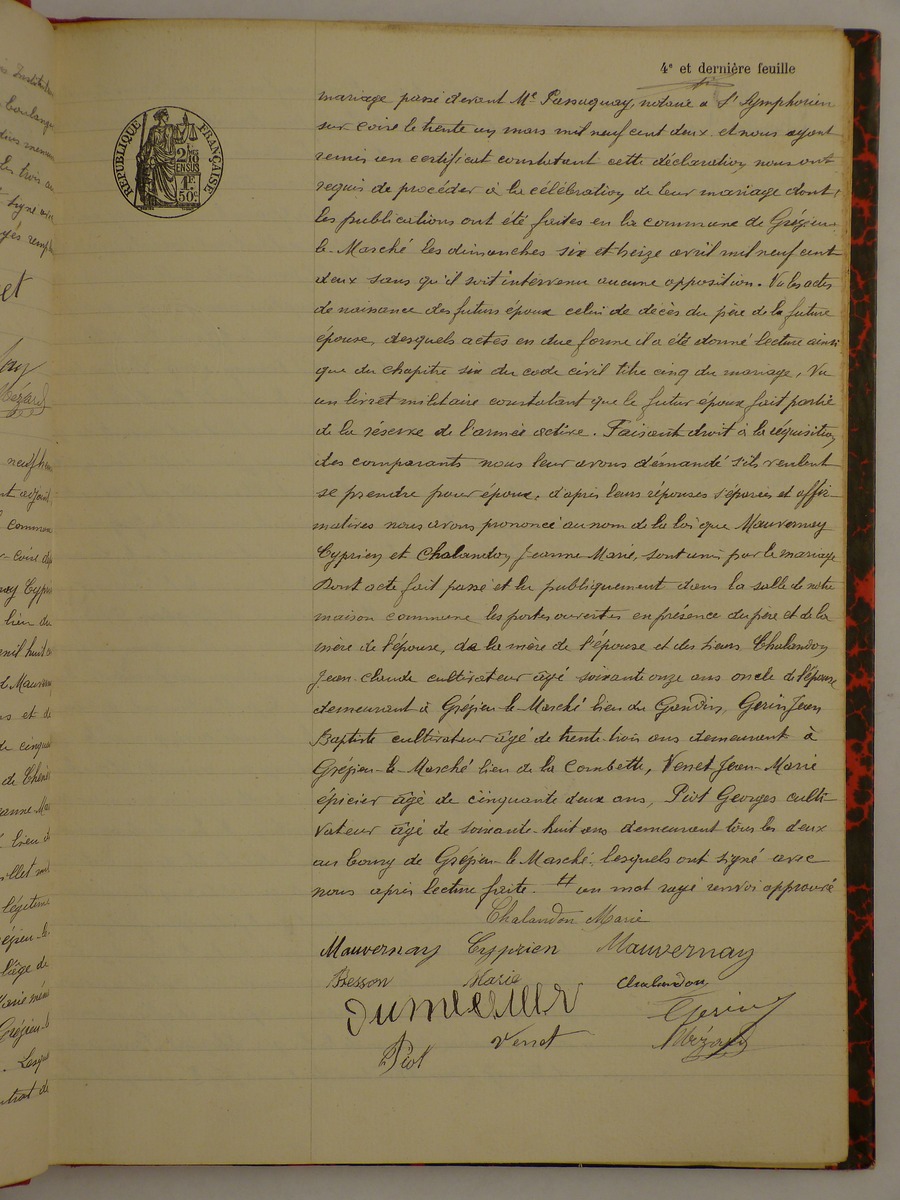 4e et dernière feuille
RÉPUBLIQUE FRANÇAISE
2/10
EN SUS
1F.
50c
mariage passé devant Me Passaquay, notaire à St Symphorien
sur coise le trente un mars mil neuf cent deux. et nous ayant
remis un certificat constatant cette déclaration, nous ont
requis de procéder à la célébration de leur mariage dont
les publications ont été faites en la commune de Grézieu-
le-Marché les dimanches six et treize avril mil neuf cent
deux sans qu'il soit intervenu aucune opposition. Vu les actes
de naissance des futurs époux celui de décès du père de la future
épouse, desquels actes en due forme il a été donné lecture ainsi
que du chapitre six du code civil titre cinq du mariage, Vu
un livret militaire constatant que le futur époux fait partie
de la réserve de l'armée active. Faisant droit à la réquisition
des comparants nous leur avons démandé s'ils veulent
se prendre pour époux, d'après leurs réponses séparées et affir-
matives nous avons prononcé au nom de la loi que Mauvernay
Cyprien et Chalandon Jeanne Marie, sont unis par le mariage
Dont acte fait passé et lu publiquement dans la salle de notre
maison commune les portes ouvertes en présence du père et de la
mère de l'épouse, de la mère de l'épouse et des sieurs Chalandon
Jean-Claude cultivateur âgé soixante onze ans oncle de l'épouse
demeurant à Grézieu-le-Marché lieu du Gandin, Gerin Jean
Baptiste cultivateur âgé de trente-trois ans demeurant à
Grézieu-le-Marché lieu de la Combette, Venet Jean-Marie
épicier âgé de cinquante deux ans, Piot Georges culti-
vateur âgé de soixante-huit ans demeurant tous les deux
au bourg de Grézieu-le-Marché, lesquels ont signé avec
nous après lecture faite. un mot rayé renvoi approuvé
Chalandon Marie
Mauvernay Cyprien Mauvernay
Besson Marie Chalandon
Gerin
Piot Venet